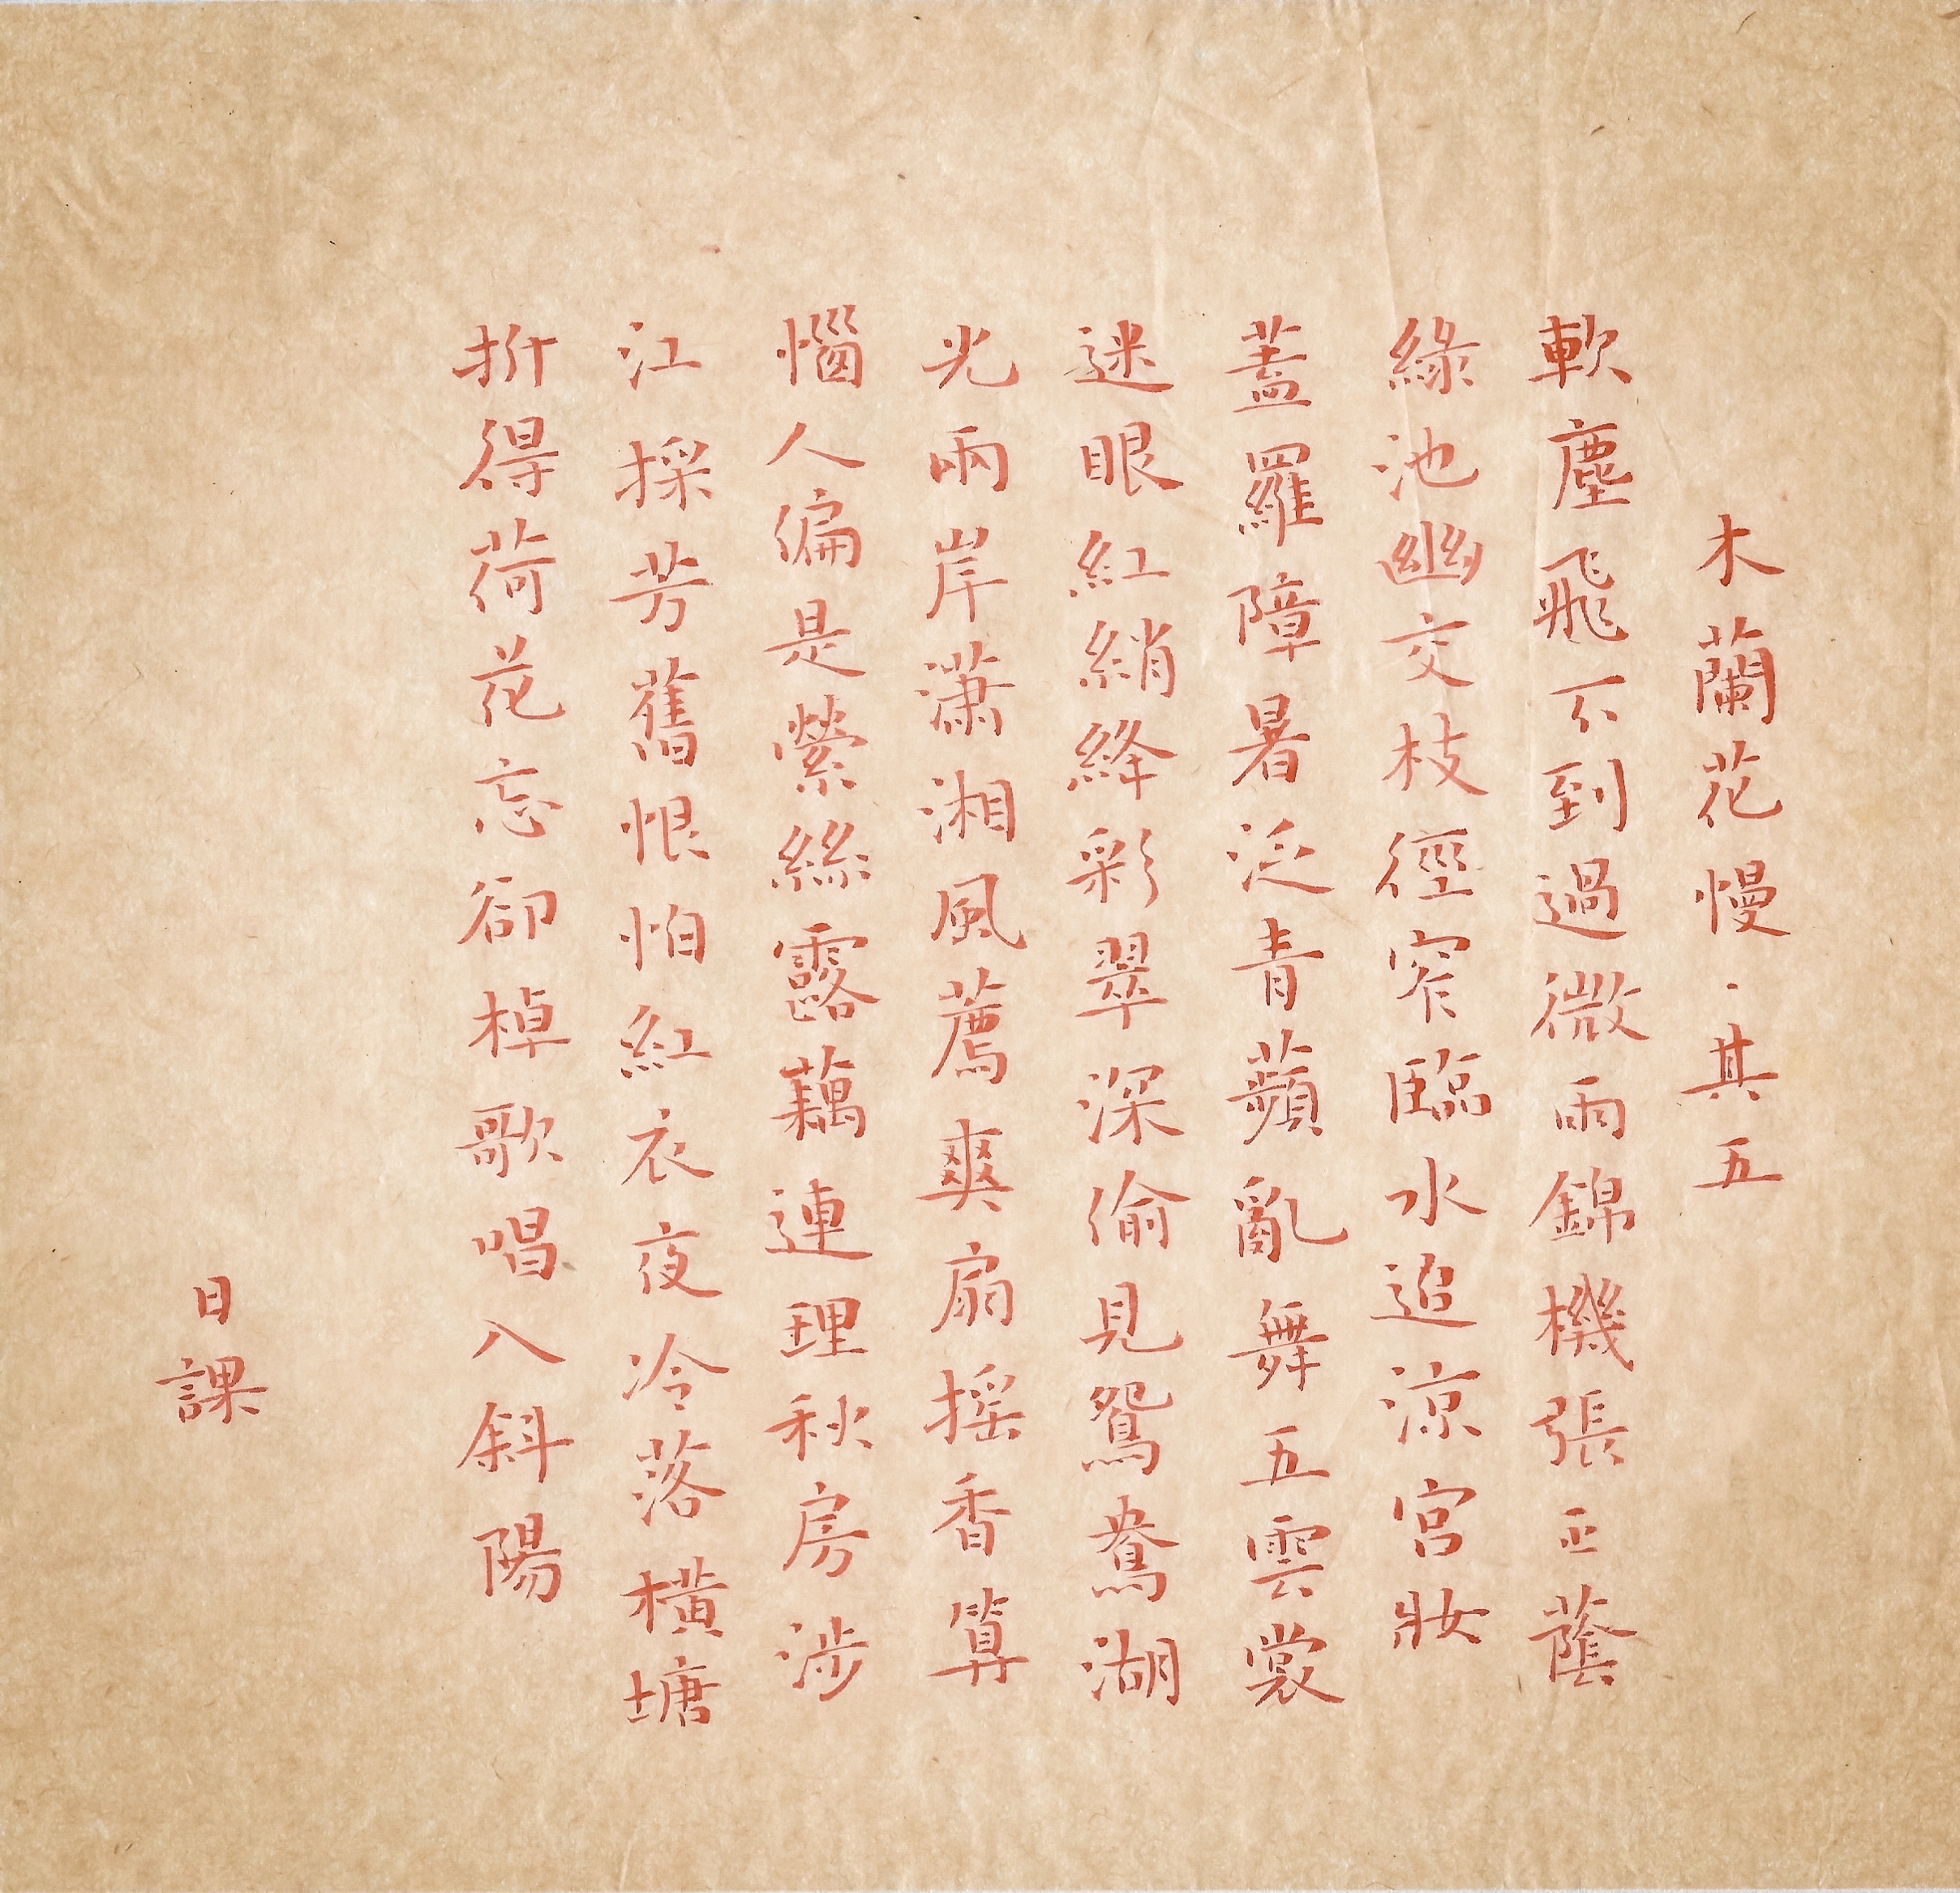 木蘭花慢·其五
軟塵飛不到過微雨錦機張正蔭
綠池幽交枝徑窄臨水追涼宮妝
蓋羅障暑泛青蘋亂舞五雲裳
迷眼紅綃絳彩翠深偷見鴛鴦湖
光兩岸瀟湘風薦爽扇搖香算
惱人偏是縈絲露藕連理秋房涉
江採芳舊恨怕紅衣夜冷落橫塘
折得荷花忘卻棹歌唱入斜陽
日課